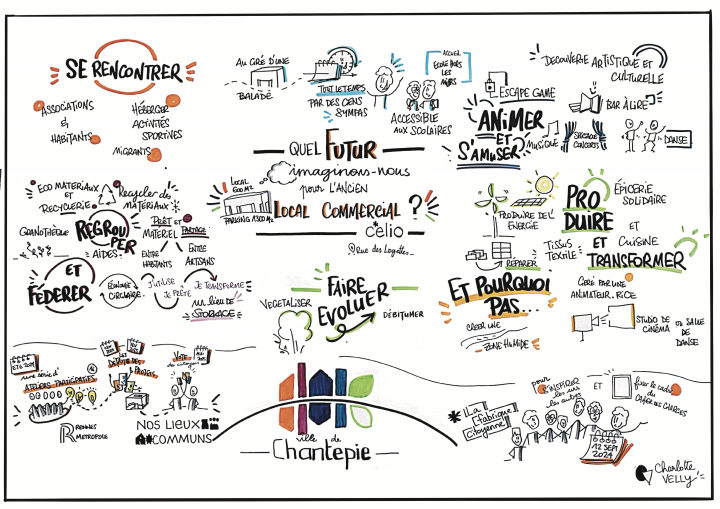 SE RENCONTRER
ASSOCIATIONS
ET
HABITANTS
HÉBERGER
ACTIVITÉS
SPORTIVES
MIGRANTS
AU GRÉ D'UNE
BALADE
TOUT LE TEMPS
PAR DES GENS
SYMPAS
ACCUEIL
ECOLE HORS
LES
MURS
ACCESSIBLE
AUX SCOLAIRES
DECOUVERTE ARTISTIQUE ET
CULTURELLE
ESCAPE GAME
BAR À LIRE
ANIMER
ET
S'AMUSER
MUSIQUE
SPECTACLE
CONCERTS
DANSE
QUEL FUTUR
imaginons-nous
pour L'ANCIEN
LOCAL COMMERCIAL ?
célio
@Rue des Logettes
LOCAL
600 M2
PARKING 1300 M2
ECO MATERIAUX
ET
RECYCLERIE
Recycler des
MATÉRIAUX
GRAINOTHÈQUE
REGROUPER
PRÊT ET PARTAGE
MATERIEL
AIDES
ENTRE
HABITANTS
ENTRE
ARTISANS
ET
FÉDERER
ÉCONOMIE
CIRCULAIRE
J'UTILISE
JE PRÊTE
JE TRANSFORME
un lieu de
STOCKAGE
PRODUIRE DE L'
ÉNERGIE
RÉPARER
PRODUIRE
ET
TRANSFORMER
ÉPICERIE
SOLIDAIRE
ET
CUISINE
TISSUS
TEXTILE
FAIRE
EVOLUER
VEGETALISER
DÉBITUMER
ET POURQUOI
PAS...
CRÉER UNE
ZONE HUMIDE
GÉRÉ PAR UN.E
ANIMATEUR.RICE
STUDIO DE
CINÉMA
OU SALLE
DE
DANSE
ETE 2024
une série d'
ATELIERS PARTICIPATIFS
LES
DÉPÔT DES
PROJETS
VOTE
des citoyens
RENNES
METROPOLE
NOS LIEUX
COMMUNS
ville de
Chantepie
La
fabrique
Citoyenne
pour
S'INSPIRER
les uns
les autres
ET
fixer le cadre
du
CAHIER DES CHARGES
12 SEPT
2024
Charlotte
VELLY